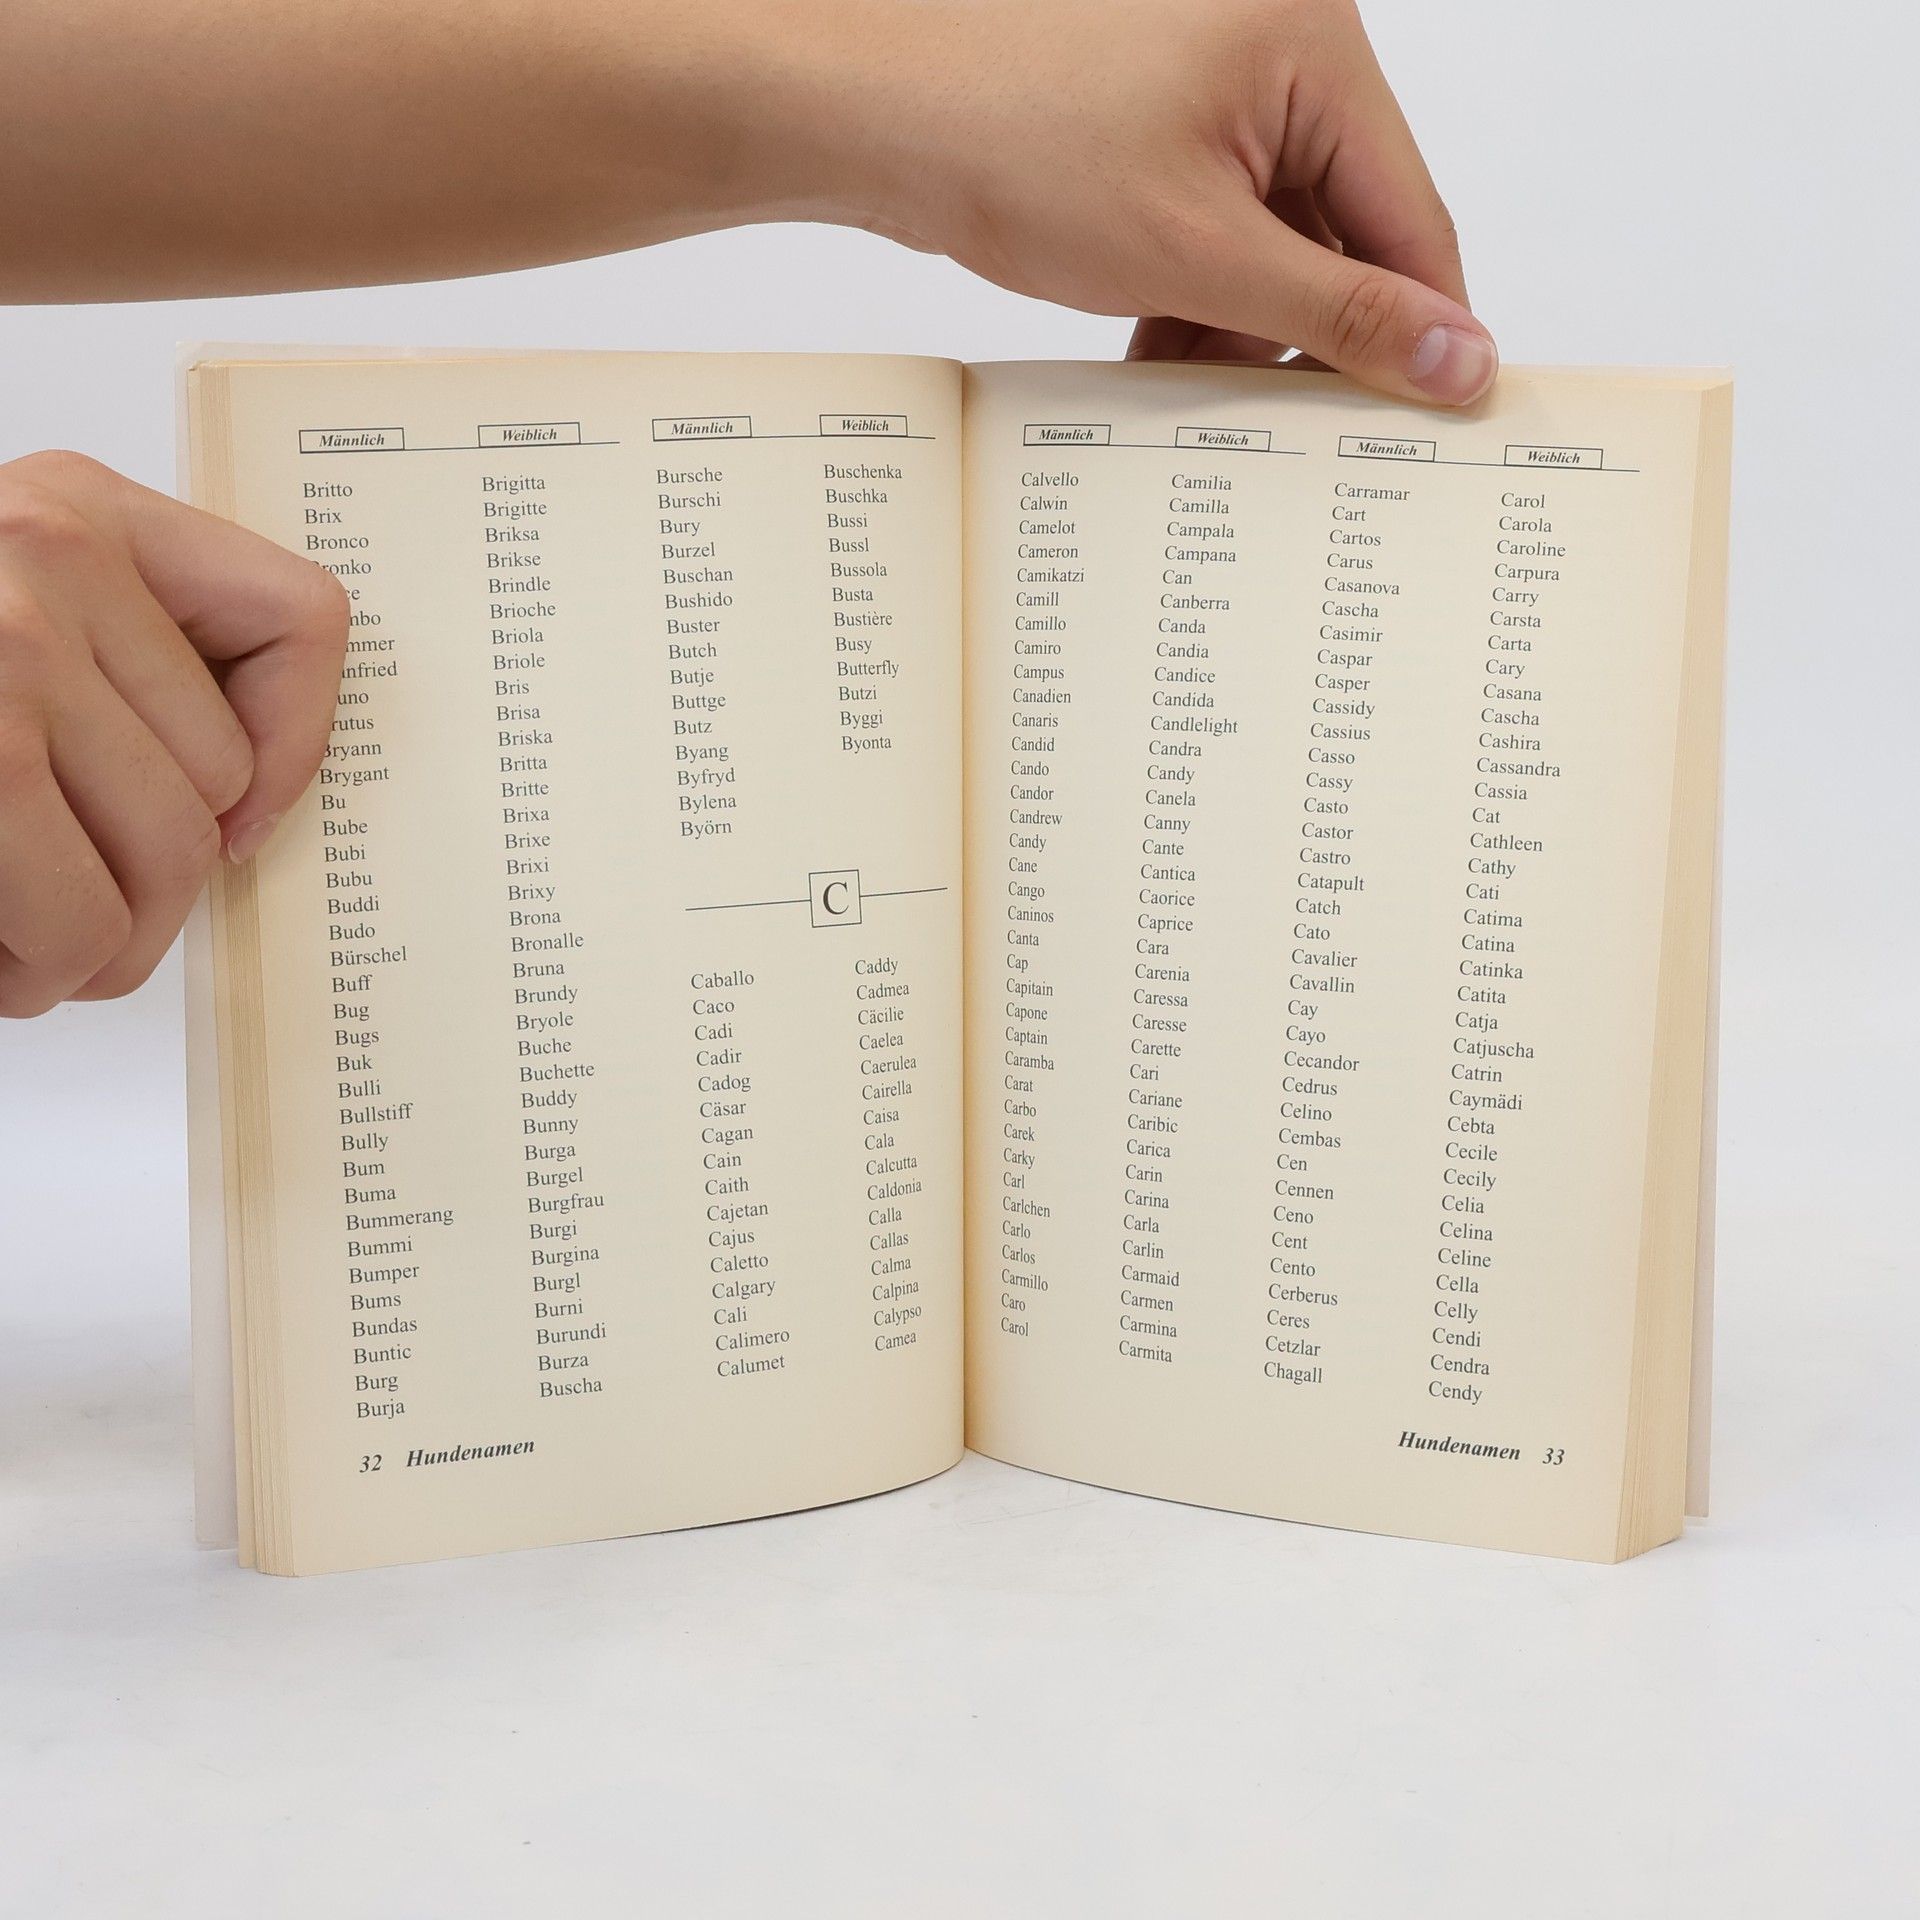 Männlich
Britto
Brix
Bronco
Brygant
Bu
Bube
Bubi
Bubu
Buddi
Budo
Bürschel
Buff
Bug
Bugs
Buk
Bulli
Bullstiff
Bully
Bum
Buma
Bummerang
Bummi
Bumper
Bums
Bundas
Buntic
Burg
Burja
Weiblich
Brigitta
Brigitte
Briksa
Brikse
Brindle
Brioche
Briola
Briole
Bris
Brisa
Briska
Britta
Britte
Brixa
Brixe
Brixi
Brixy
Brona
Bronalle
Bruna
Brundy
Bryole
Buche
Buchette
Buddy
Bunny
Burga
Burgel
Burgfrau
Burgi
Burgina
Burgl
Burni
Burundi
Burza
Buscha
Männlich
Bursche
Burschi
Bury
Burzel
Buschan
Bushido
Buster
Butch
Butje
Buttge
Butz
Byang
Byfryd
Bylena
Byörn
Weiblich
Buschenka
Buschka
Bussi
Bussl
Bussola
Busta
Bustière
Busy
Butterfly
Butzi
Byggi
Byonta
C
Caballo
Caco
Cadi
Cadir
Cadog
Cäsar
Cagan
Cain
Caith
Cajetan
Cajus
Caletto
Calgary
Cali
Calimero
Calumet
Caddy
Cadmea
Cäcilie
Caelea
Caerulea
Cairella
Caisa
Cala
Calcutta
Caldonia
Calla
Callas
Calma
Calpina
Calypso
Camea
32 Hundenamen
Männlich
Calvello
Calwin
Camelot
Cameron
Camikatzi
Camill
Camillo
Camiro
Campus
Canadien
Canaris
Candid
Cando
Candor
Candrew
Candy
Cane
Cango
Caninos
Canta
Cap
Capitain
Capone
Captain
Caramba
Carat
Carbo
Carek
Carky
Carl
Carlchen
Carlo
Carlos
Carmillo
Caro
Carol
Weiblich
Camilia
Camilla
Campala
Campana
Can
Canberra
Canda
Candia
Candice
Candida
Candlelight
Candra
Candy
Canela
Canny
Cante
Cantica
Caorice
Caprice
Cara
Carenia
Caressa
Caresse
Carette
Cari
Cariane
Caribic
Carica
Carin
Carina
Carla
Carlin
Carmaid
Carmen
Carmina
Carmita
Männlich
Carramar
Cart
Cartos
Carus
Casanova
Cascha
Casimir
Caspar
Casper
Cassidy
Cassius
Casso
Cassy
Casto
Castor
Castro
Catapult
Catch
Cato
Cavalier
Cavallin
Cay
Cayo
Cecandor
Cedrus
Celino
Cembas
Cen
Cennen
Ceno
Cent
Cento
Cerberus
Ceres
Cetzlar
Chagall
Weiblich
Carol
Carola
Caroline
Carpura
Carry
Carsta
Carta
Cary
Casana
Cascha
Cashira
Cassandra
Cassia
Cat
Cathleen
Cathy
Cati
Catima
Catina
Catinka
Catita
Catja
Catjuscha
Catrin
Caymädi
Cebta
Cecile
Cecily
Celia
Celina
Celine
Cella
Celly
Cendi
Cendra
Cendy
Hundenamen 33